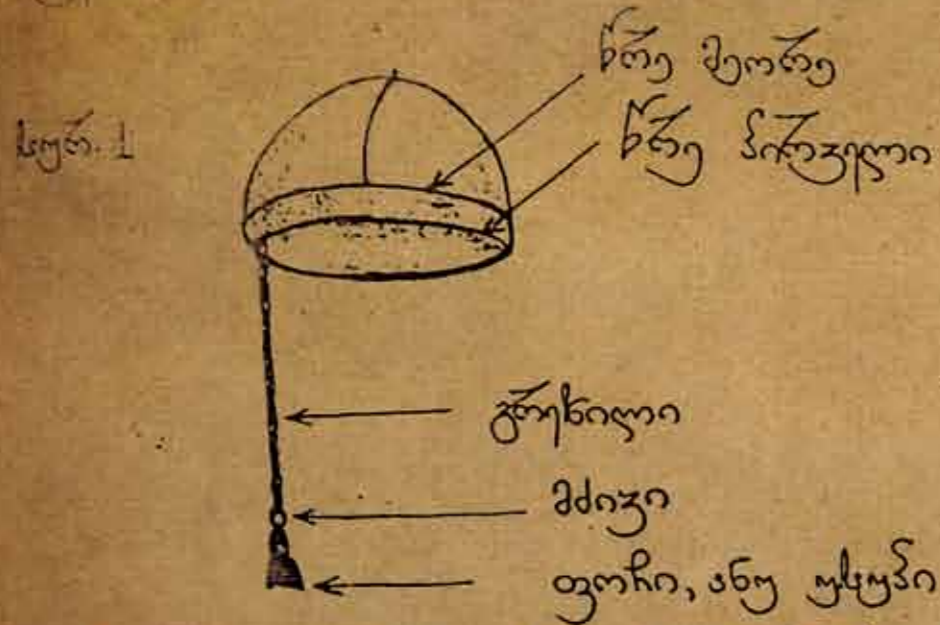 სურ. 1
წრე მეორე
წრე პირველი
გრეხილი
მძივი
ფოჩი, ანუ უსუპი